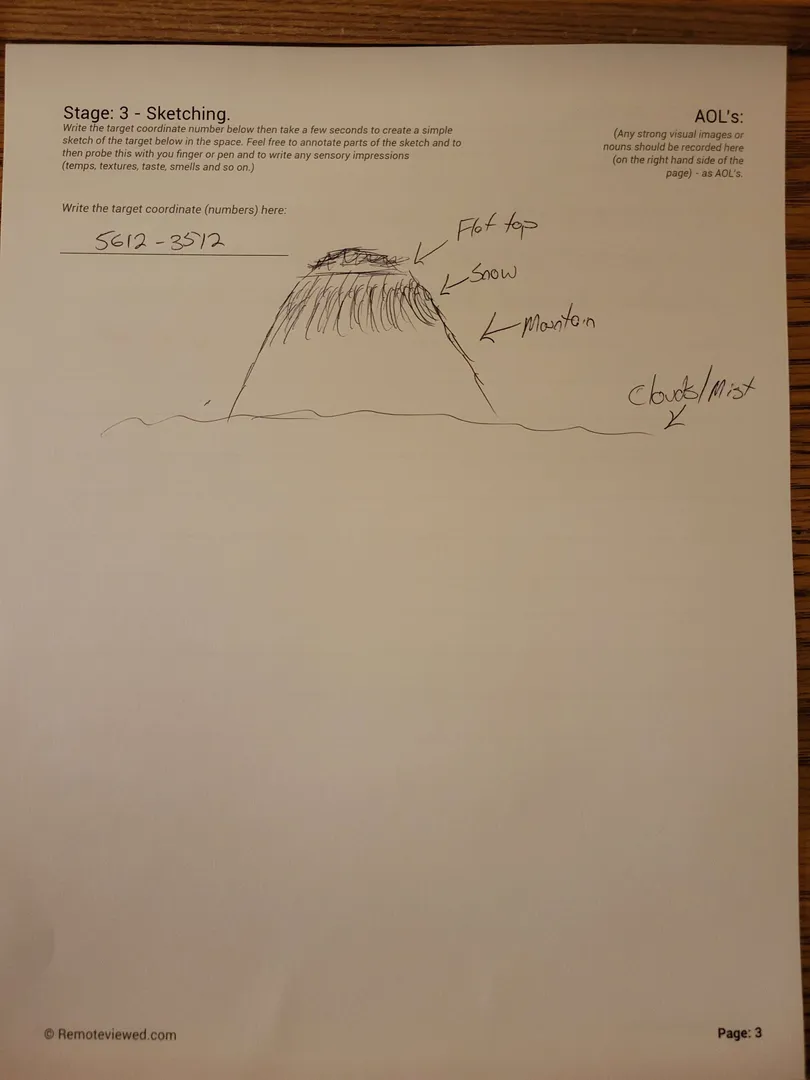 Stage: 3 - Sketching.
Write the target coordinate number below then take a few seconds to create a simple
sketch of the target below in the space. Feel free to annotate parts of the sketch and to
then probe this with you finger or pen and to write any sensory impressions
(temps, textures, taste, smells and so on.)
AOL's:
(Any strong visual images or
nouns should be recorded here
(on the right hand side of the
page) - as AOL's.
Write the target coordinate (numbers) here:
5612-3512
Flat top
Snow
Mountain
Clouds/Mist
© Remoteviewed.com
Page: 3